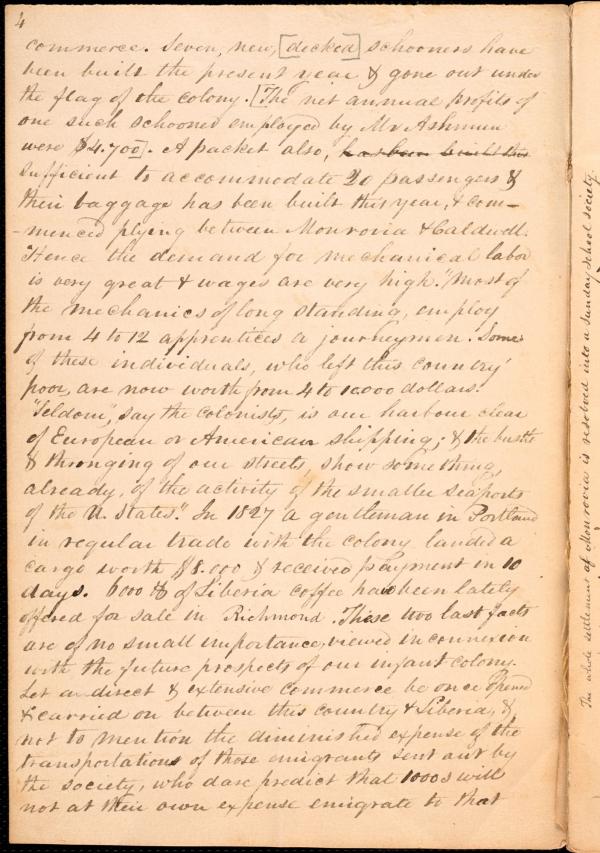 4
commerce. Seven, new, [decked] schooners have
been built the present year & gone out under
the flag of the colony. [The net annual profits of
one such schooner employed by Mr Ashmun
were $4.700]. A packet also, has been built this
sufficient to accommodate 20 passengers &
their baggage has been built this year, & com-
-menced plying between Monrovia & Caldwell.
Hence the demand for mechanical labor
is very great & wages are very high. "Most of
the mechanics of long standing, employ
from 4 to 12 apprentices & journeymen. Some
of these individuals, who left this country
poor, are now worth from 4 to 10000 dollars."
"Seldom", say the colonists, is our harbour clear
of European or American shipping; & the bustle
& thronging of our streets, show something,
already, of the activity of the smaller seaports
of the U. States." In 1827 a gentleman in Portland
in regular trade with the colony landed a
cargo worth $8.000 & received payment in 10
days. 6000 lb of Liberia coffee has been lately
offered for sale in Richmond. These two last facts
are of no small importance, viewed in connexion
with the future prospects of our infant colony.
Let a direct & extensive commerce be once opened
& carried on between this country & Liberia, &
not to mention the diminished expense of the
transportations of those emigrants sent out by
the society, who dare predict that 1000s will
not at their own expense emigrate to that
The whole settlement of Monrovia is resolved into a Sunday school society.